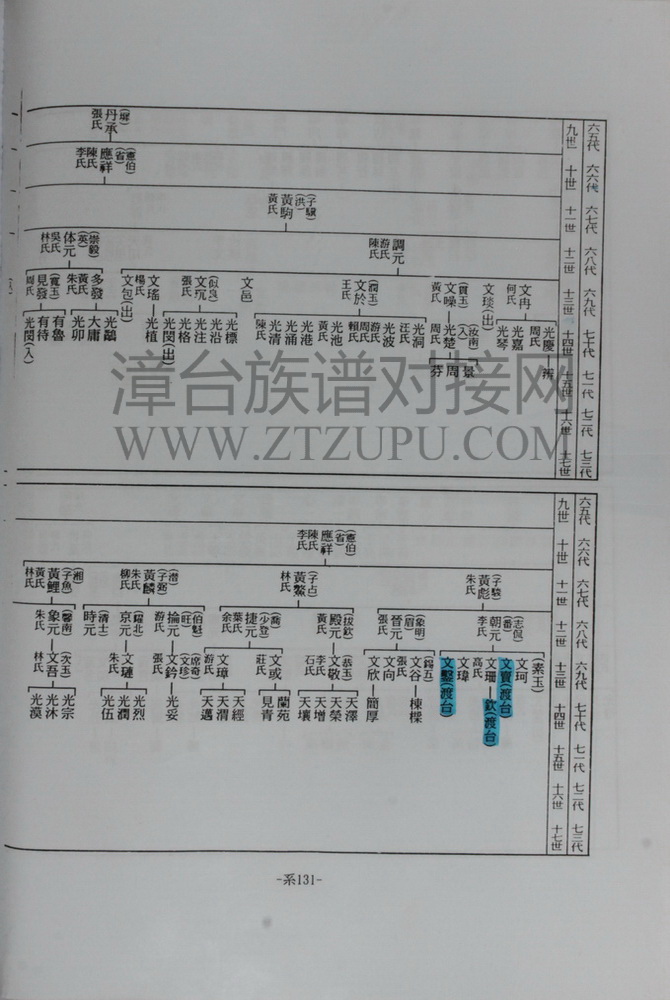 六五代 六六代 六七代 六八代 六九代 七十代 七一代 七二代 七三代
九世 十世 十一世 十二世 十三世 十四世 十五世 十六世 十七世
丹承 張氏
應祥(憲伯)(省) 陳氏 李氏
黃駒(子驥)(洪) 黃氏
調元 游氏 陳氏
体元(崇毅)(英) 吳氏 林氏
文冉 何氏
文琰(出)
文噪(貢玉) 黃氏
文於(潤玉) 王氏
文邑
文玩(似良) 張氏
文瑤 楊氏
文包(出)
多發 黃氏 朱氏
見發(寬玉) 周氏
光慶 周氏
光嘉
光琴
光楚(汝南)(入) 周氏
光洞 汪氏
光波 游氏 周氏 賴氏
光池 黃氏
光港
光涌
光清 陳氏
光標
光沿
光注
光格
光閔(出)
光植
光鸝
大庸
光卯
有魯
有待
光閔(入)
景
周
芬
漳台族谱对接网
WWW.ZTZUPU.COM
六五代 六六代 六七代 六八代 六九代 七十代 七一代 七二代 七三代
九世 十世 十一世 十二世 十三世 十四世 十五世 十六世 十七世
應祥(憲伯)(省) 陳氏 李氏
黃彪(子駿) 朱氏
黃鰲(子占) 林氏
黃麟(子弼)(潛) 朱氏 柳氏
黃鯉(子魚)(湘) 黃氏 林氏
朝元(志侃)(番) 李氏
晉元(象明)(眉) 張氏
殿元(拔欽) 黃氏
捷元(喬)(少登) 葉氏 余氏
掄元(伯魁)(旺) 游氏
京元(耀北)
時元(清士)
象元(馨南) 朱氏
(素玉)
文珂
文寶(渡台)
文珊 高氏
文瑋
文堅(渡台)
文谷(錦五) 張氏
文向
文欣
文敬(恭玉) 李氏 石氏
文或 莊氏
文璋 游氏
文鈐(席奇)(文珍) 張氏
文璉 朱氏
文吾(次玉) 林氏
欽(渡台)
棟樑
簡厚
天澤
天榮
天增
天壤
蘭苑
見青
天經
天渭
天邁
光妥
光烈
光潤
光伍
光宗
光沐
光漠
-系131-